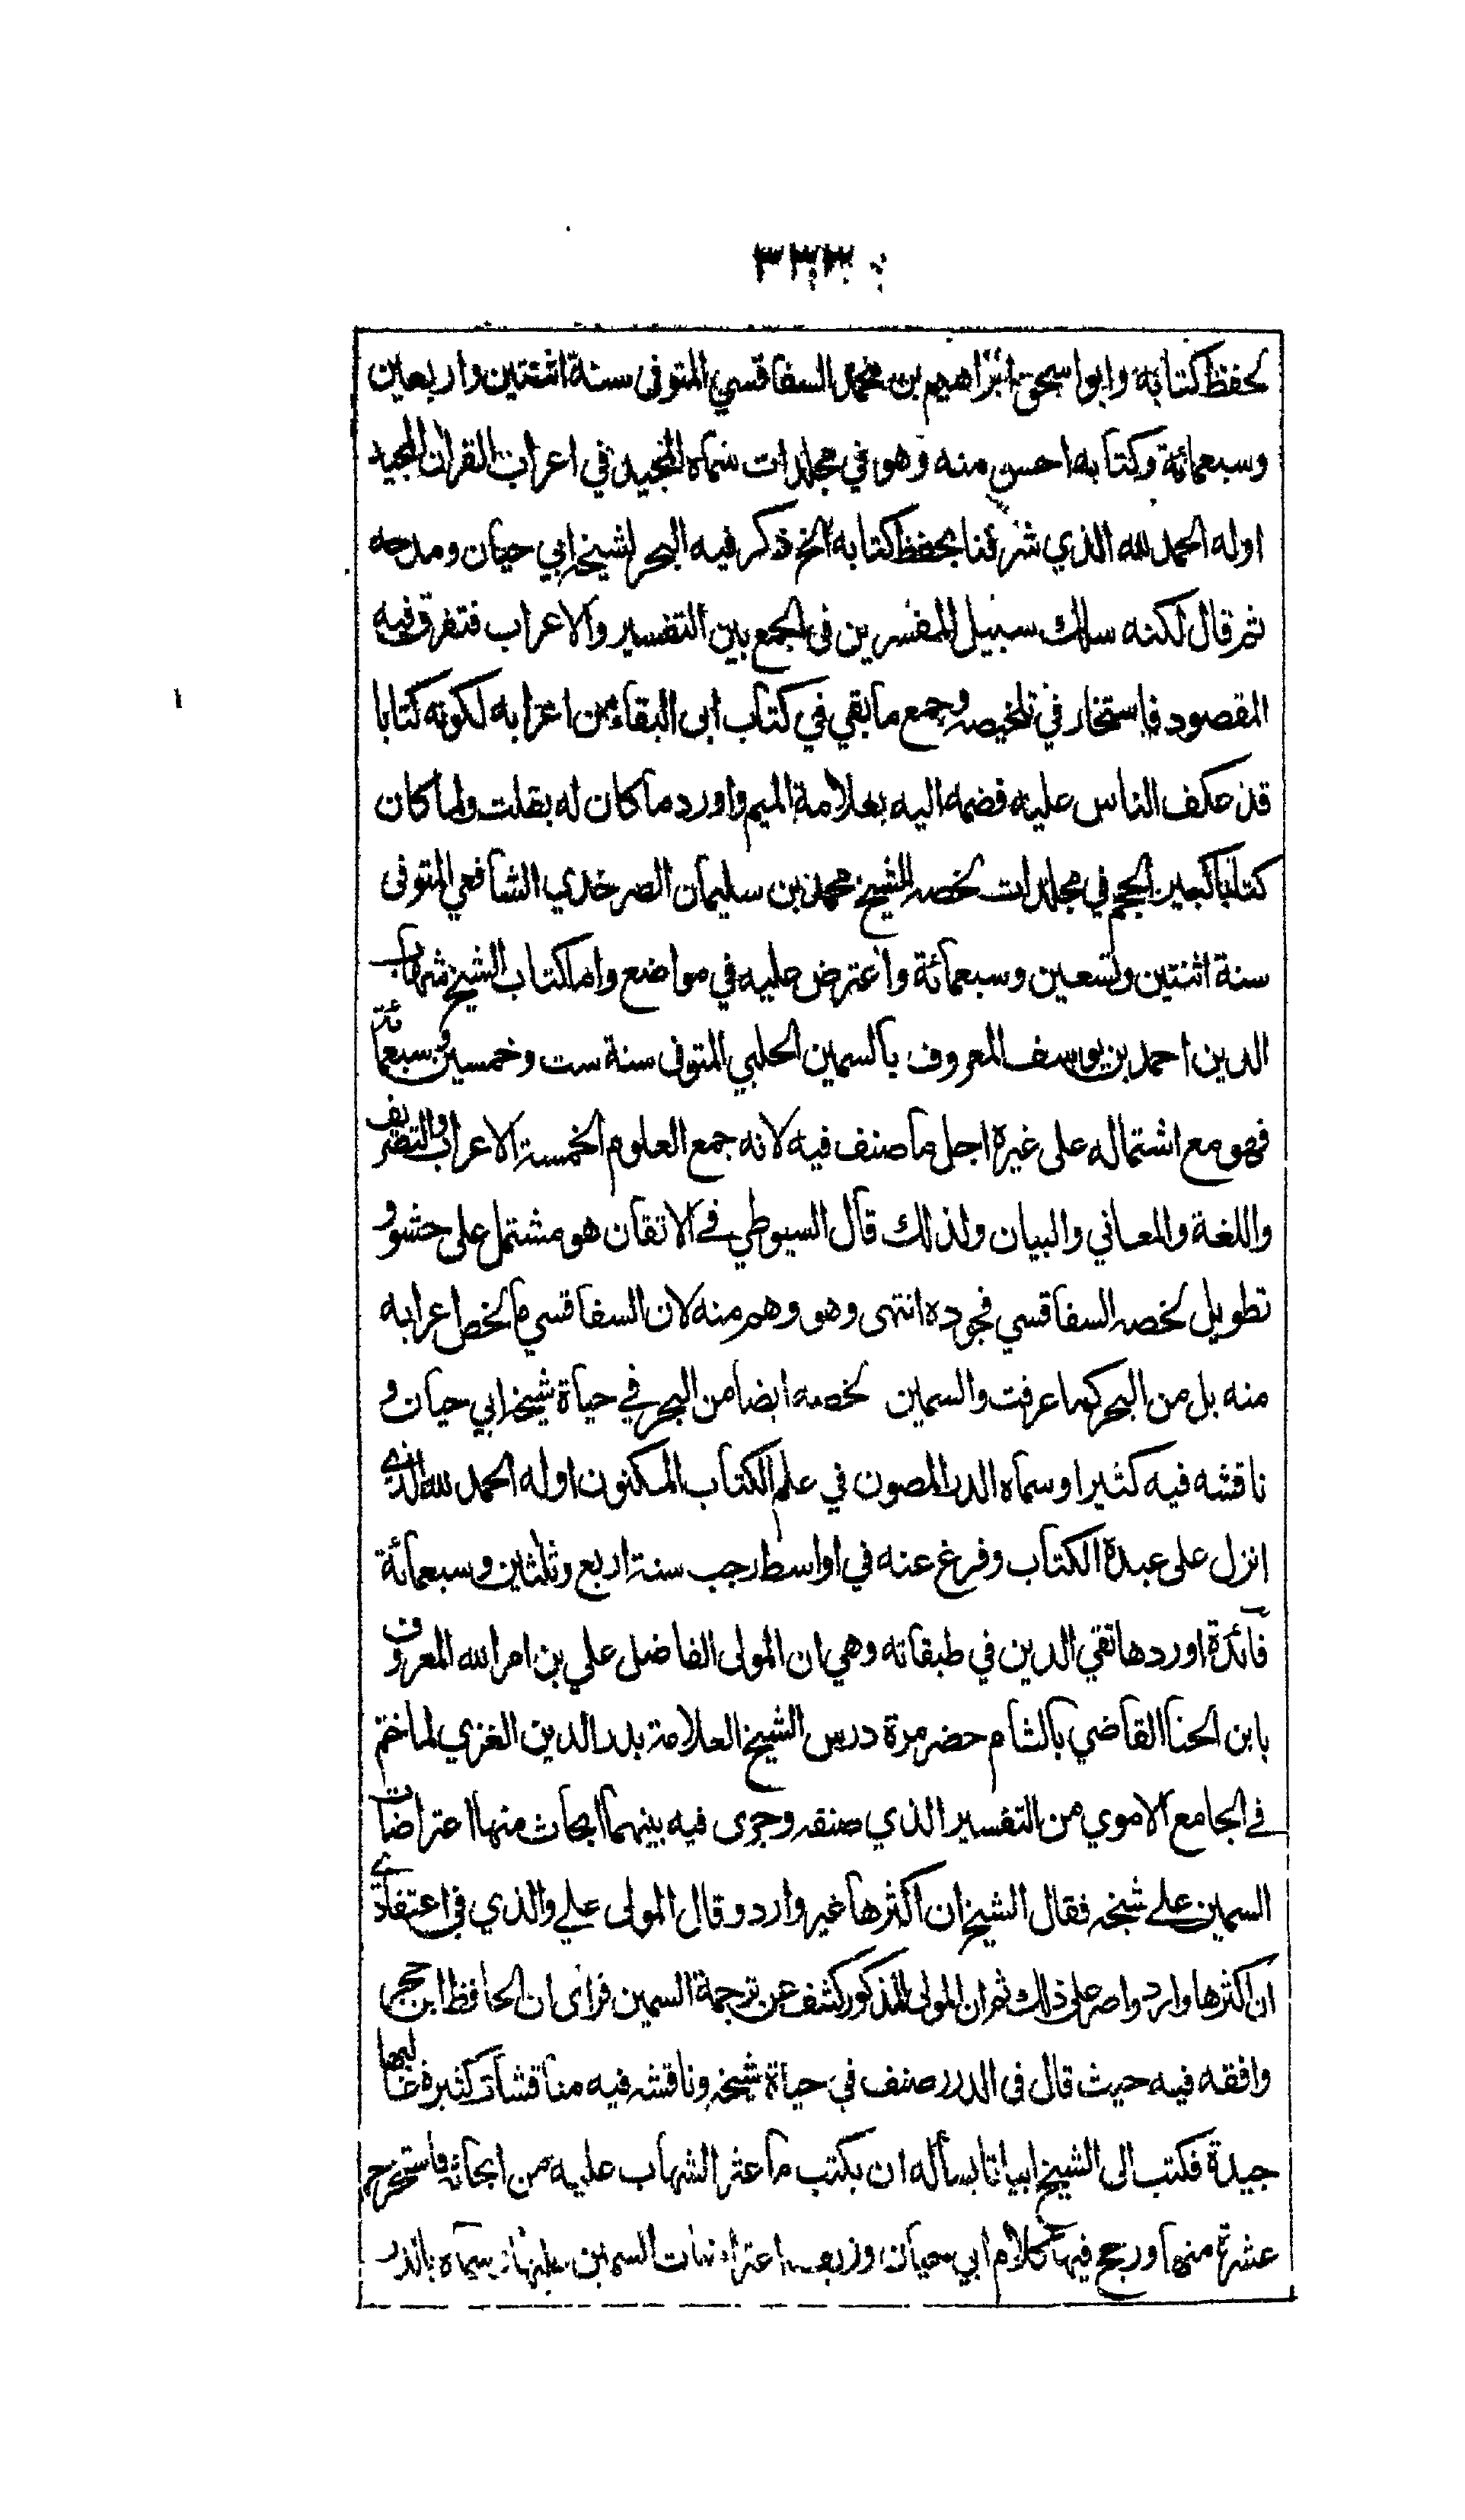 ٣٣٣
لحفظ كتابه وابو اسحق ابراهيم بن محمد السفاقسي المتوفى سنة اثنتين واربعين
وسبعمائة وكتابه احسن منه وهو في مجلدات سماه المجيد في اعراب القرآن المجيد
اوله الحمد لله الذي شرفنا بحفظ كتابه الخ ذكر فيه البحر لشيخه ابي حيان ومدحه
ثم قال لكنه سلك سبيل المفسرين فى الجمع بين التفسير والاعراب فتفرق فيه
المقصود فاستخار في تلخيصه وجمع ما بقي في كتاب ابى البقاء من اعرابه لكونه كتابا
قد عكف الناس عليه فضمه اليه بعلامة الميم واورد ما كان له بقلت ولما كان
كتابا كبير الحجم في مجلدات لخصه الشيخ محمد بن سليمان الصرخدي الشافعي المتوفى
سنة اثنتين وتسعين وسبعمائة واعترض عليه في مواضع واما كتاب الشيخ شهاب
الدين احمد بن يوسف المعروف بالسمين الحلبي المتوفى سنة ست وخمسين وسبعمائة
فهو مع اشتماله على غيره اجل ما صنف فيه لانه جمع العلوم الخمسة الاعراب والتصريف
واللغة والمعاني والبيان ولذلك قال السيوطي في الاتقان هو مشتمل على حشو و
تطويل لخصه السفاقسي فجوده انتهى وهو وهم منه لان السفاقسي ما لخص اعرابه
منه بل من البحر كما عرفت والسمين لخصه ايضا من البحر في حياة شيخه ابي حيان و
ناقشه فيه كثيرا وسماه الدر المصون في علم الكتاب المكنون اوله الحمد لله الذي
انزل على عبده الكتاب وفرغ عنه في اواسط رجب سنة اربع وثلثين وسبعمائة
فائدة اوردها تقي الدين في طبقاته وهي ان المولى الفاضل علي بن امر الله المعروف
بابن الحنا القاضي بالشام حضر مرة درس الشيخ العلامة بدر الدين الغزي لما ختم
في الجامع الاموي من التفسير الذي صنفه وجرى فيه بينهما ابحاث منها اعتراضات
السمين على شيخه فقال الشيخ ان اكثرها غير وارد وقال المولى علي والذي في اعتقادي
ان اكثرها وارد واصر على ذلك ثم ان المولى المذكور كشف عن ترجمة السمين فرأى ان الحافظ ابن حجر
وافقه فيه حيث قال فى الدرر صنف في حياة شيخه وناقشه فيه مناقشات كثيرة غالبها
جيدة فكتب الى الشيخ ابياتا يسأله ان يكتب ما عثر الشهاب عليه من ابحاثه فاستخرج
عشرة منها ورجح فيها كلام ابي حيان وزيف اعتراضات السمين عليها وسماه بالدر